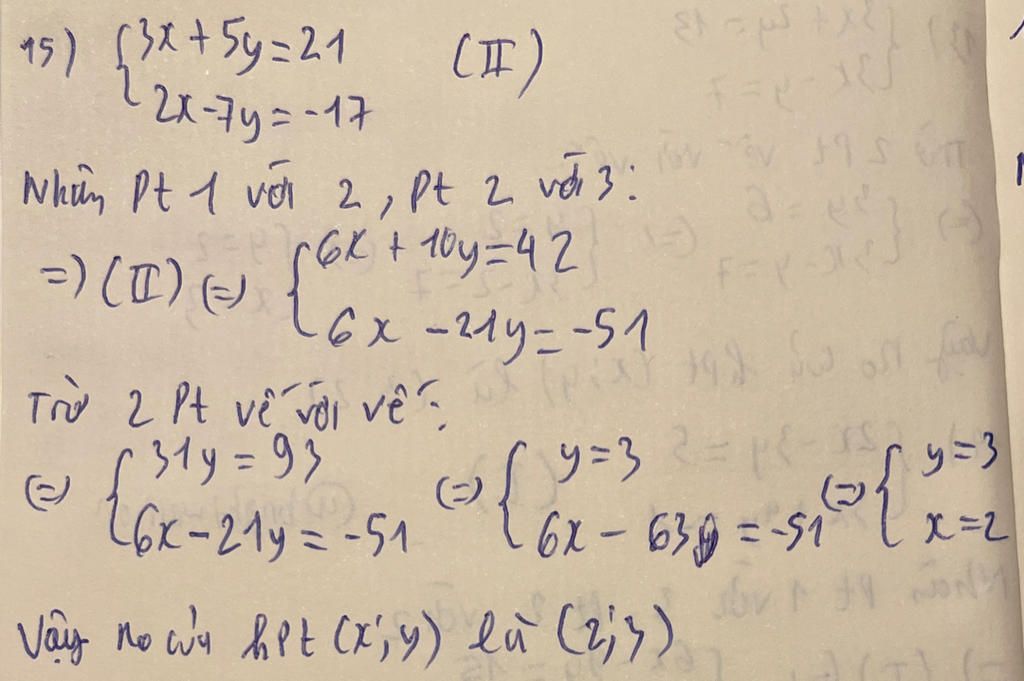 15) {3x + 5y = 21 (II)
2x - 7y = -17
Nhân Pt 1 với 2, Pt 2 với 3:
=) (II) (=) {6x + 10y = 42
6x - 21y = -51
Trừ 2 Pt vế với vế:
(=) {31y = 93 (=) {y = 3 (=) {y = 3
6x - 21y = -51 6x - 63 = -51 x = 2
Vậy no của hPt (x; y) là (2; 3)